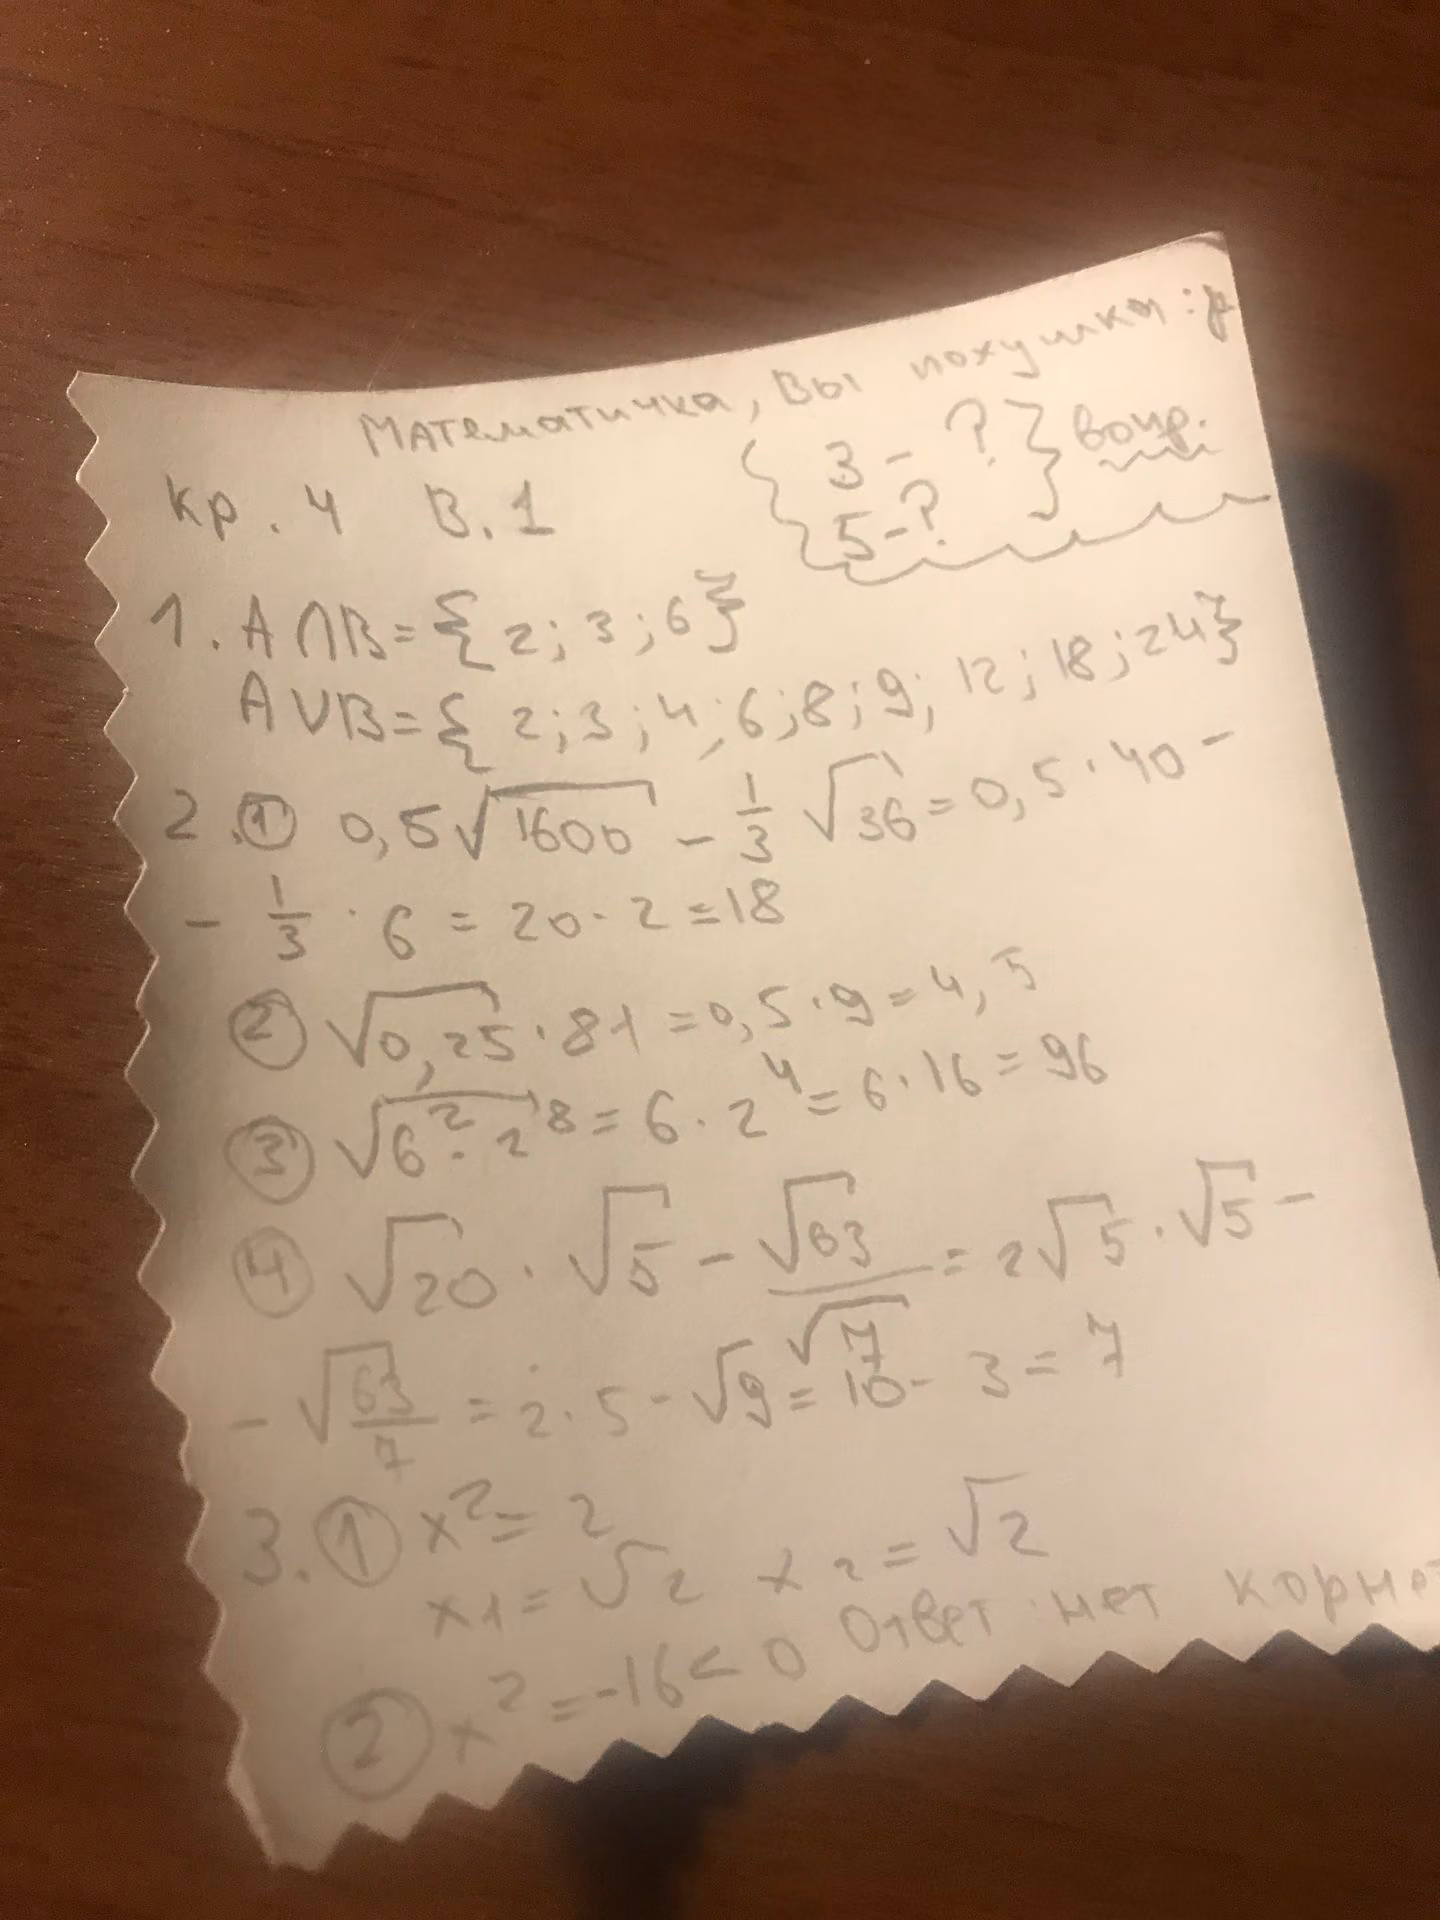 Математичка, Вы похушка :р
кр. 4 В.1
{ 3 - ? } вопр.
5 - ?
1. A∩B={2;3;6}
A∪B={2;3;4;6;8;9;12;18;24}
2. ① 0,5√1600 - 1/3 √36 = 0,5·40 -
- 1/3 · 6 = 20 - 2 = 18
② √0,25·81 = 0,5·9 = 4,5
③ √6²·2⁸ = 6·2⁴ = 6·16 = 96
④ √20 · √5 - √63/√7 = 2√5 · √5 -
- √63/7 = 2·5 - √9 = 10 - 3 = 7
3. ① x² = 2
x1 = √2 x2 = √2
② x² = -16 < 0 Ответ: нет